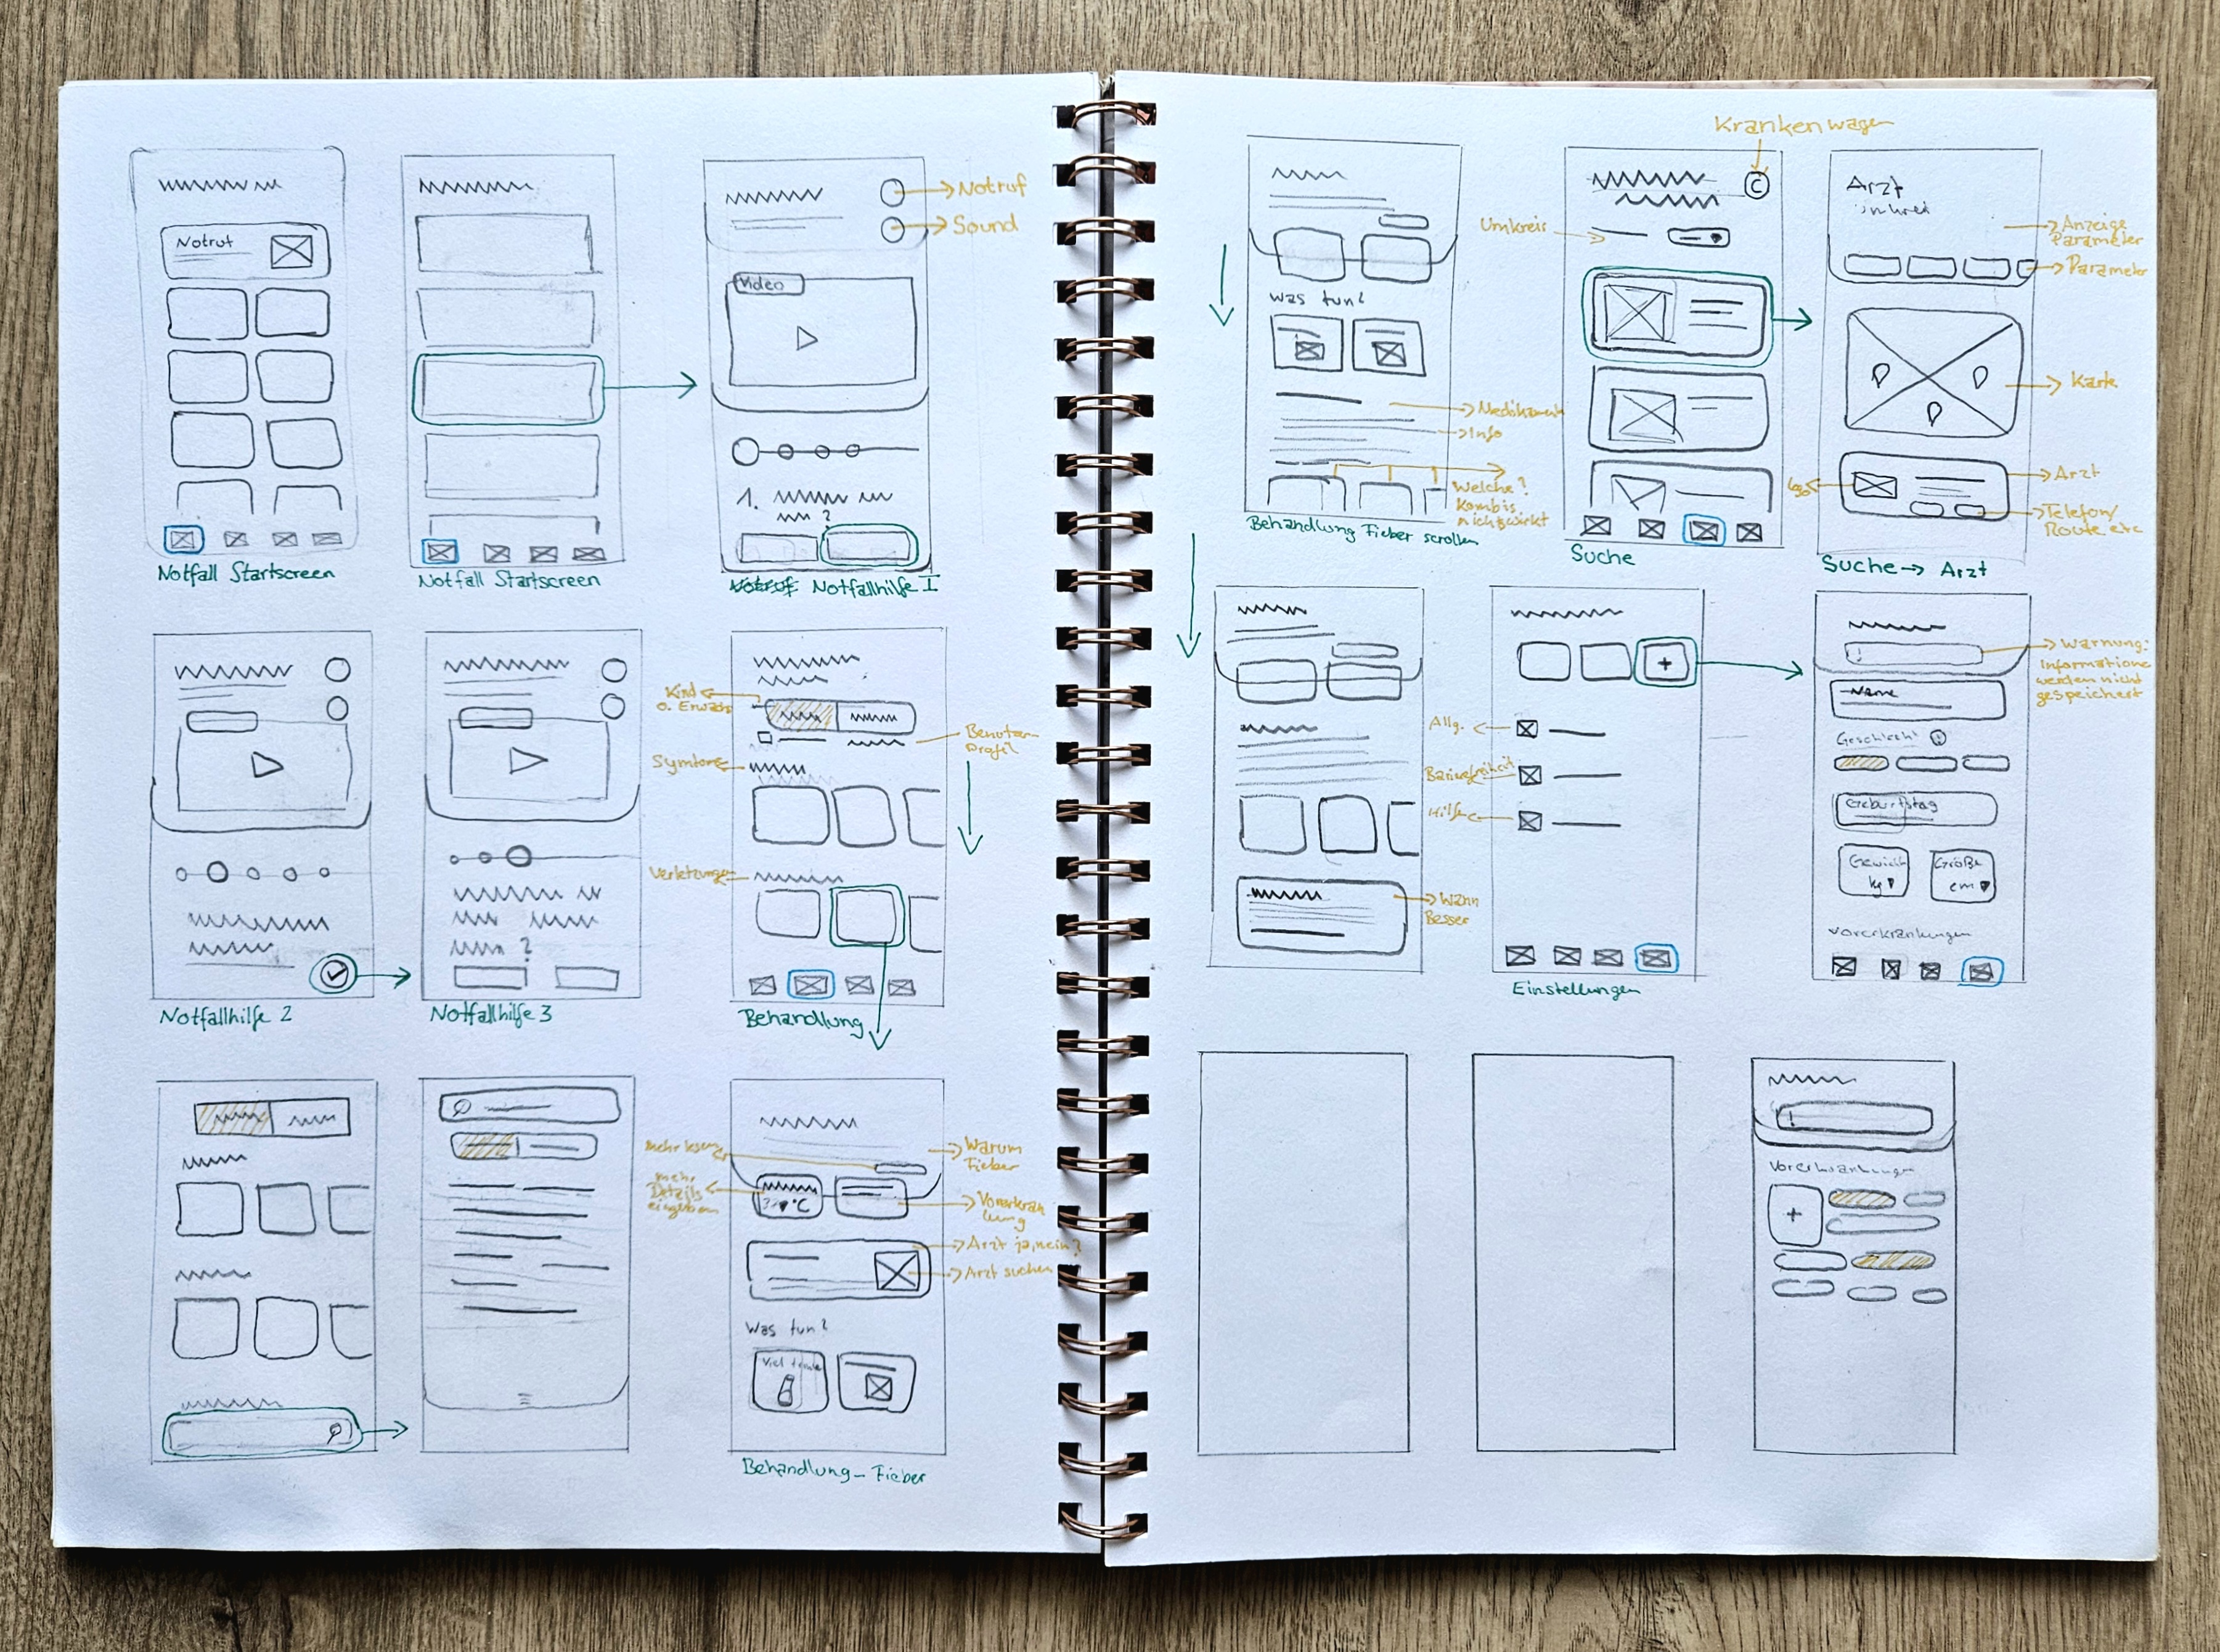 Notruf
Notfall Startscreen
Notfall Startscreen
Notruf
Sound
Video
1.
?
Notruf Notfallhilfe 1
Notfallhilfe 2
?
Notfallhilfe 3
Kind
o. Erwachs
Benutzer-
profil
Symtome
Verletzungen
Behandlung
mehr lesen
mehr
Details
eingeben
°C
Warum
Fieber
Vorerkran
kung
Arzt ja, nein?
Arzt suchen
Was tun?
Viel
Behandlung - Fieber
Was tun?
Medikament
Info
Welche?
Kombis
nicht
Behandlung Fieber scrollen
Krankenwagen
C
Umkreis
Suche
Arzt
Umkreis
Anzeige
Parameter
Parameter
Karte
Logo
Arzt
Telefon/
Route etc
Suche → Arzt
Wann
Besser
+
Allg.
Barrierefreiheit
Hilfe
Einstellungen
!
Warnung:
Informatione
werden nicht
gespeichert
Name
Geschlecht
Geburtstag
Gewicht
kg
Größe
cm
Vorerkrankungen
!
Vorerkrankungen
+